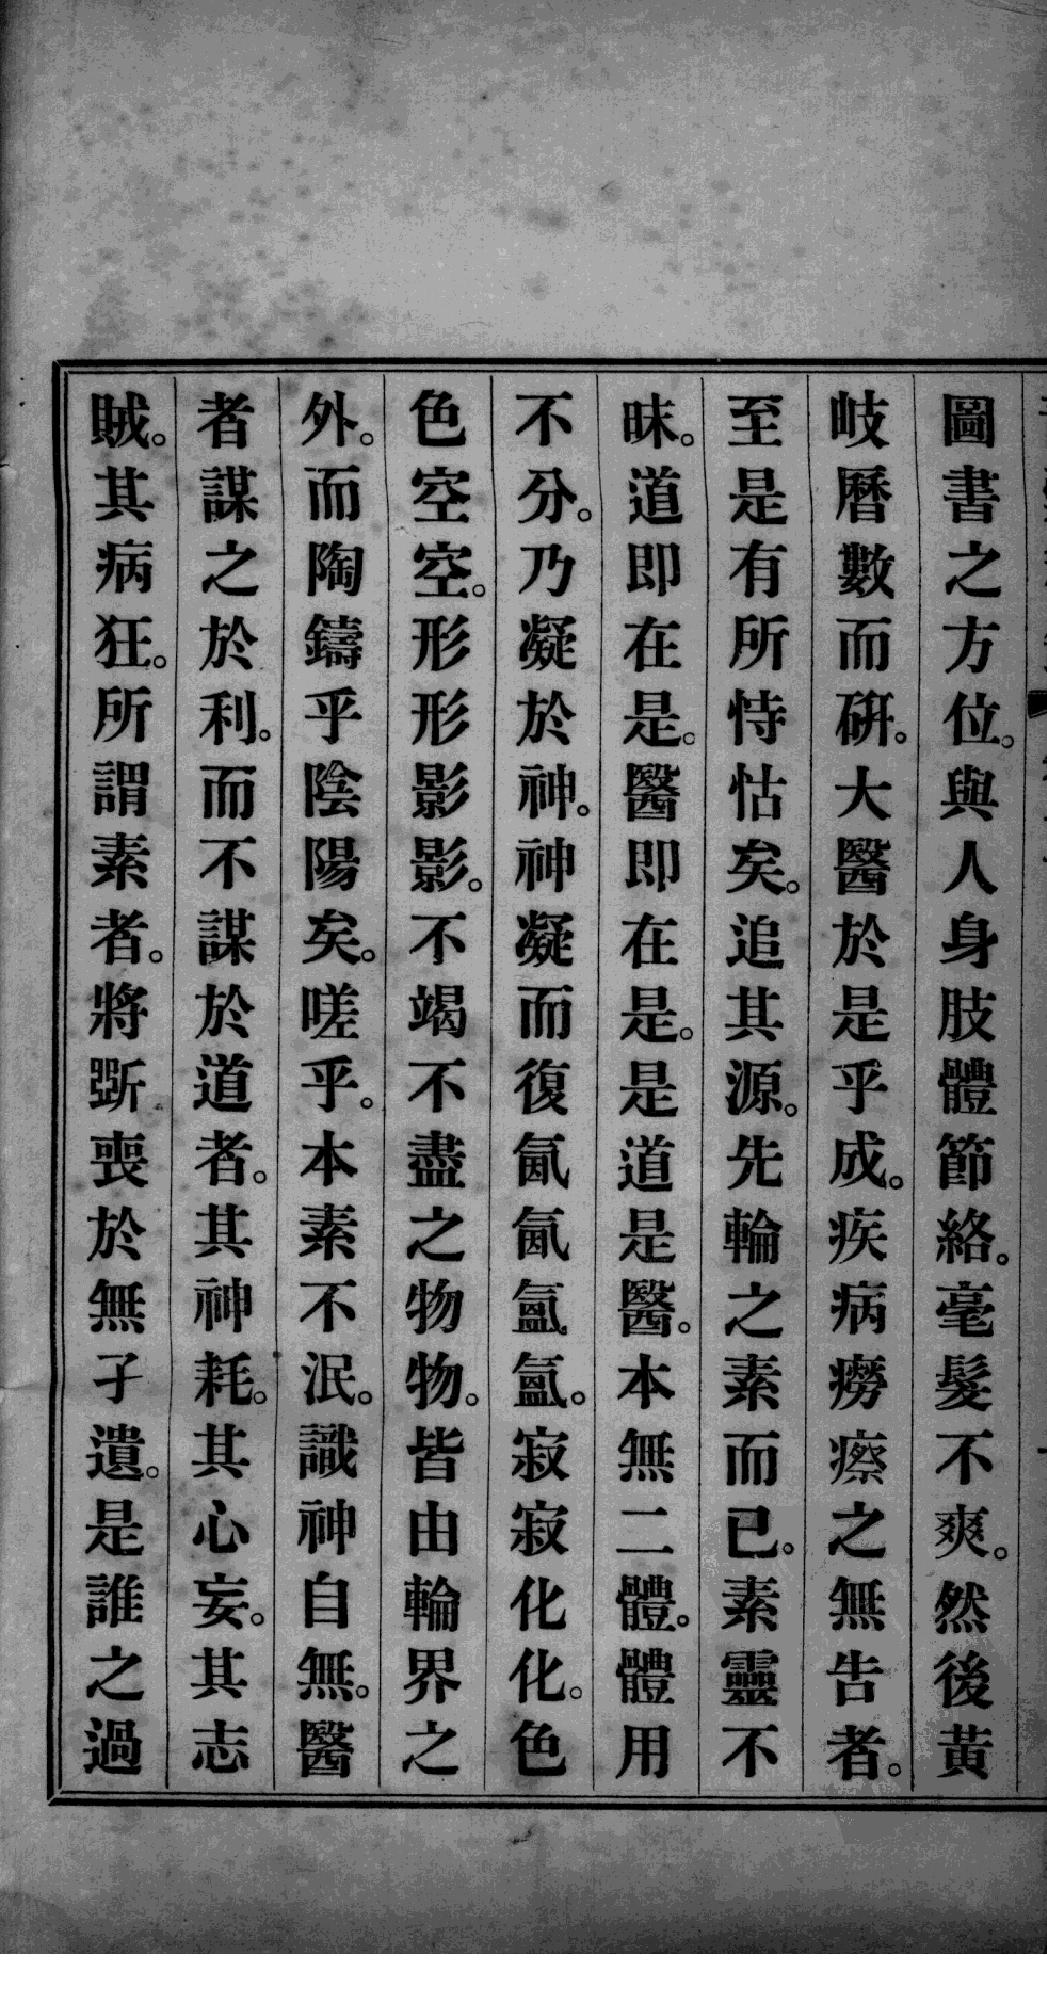 圖書之方位。與人身肢體節絡。毫髮不爽。然後黃
岐曆數而硏。大醫於是乎成。疾病癆瘵之無告者。
至是有所恃怙矣。追其源。先輪之素而已。素靈不
昧。道即在是。醫即在是。是道是醫。本無二體。體用
不分。乃凝於神。神凝而復氤氤氳氳。寂寂化化。色
色空空。形形影影。不竭不盡之物物。皆由輪界之
外。而陶鑄乎陰陽矣。嗟乎。本素不泯。識神自無。醫
者謀之於利。而不謀於道者。其神耗。其心妄。其志
賊。其病狂。所謂素者。將斲喪於無孑遺。是誰之過